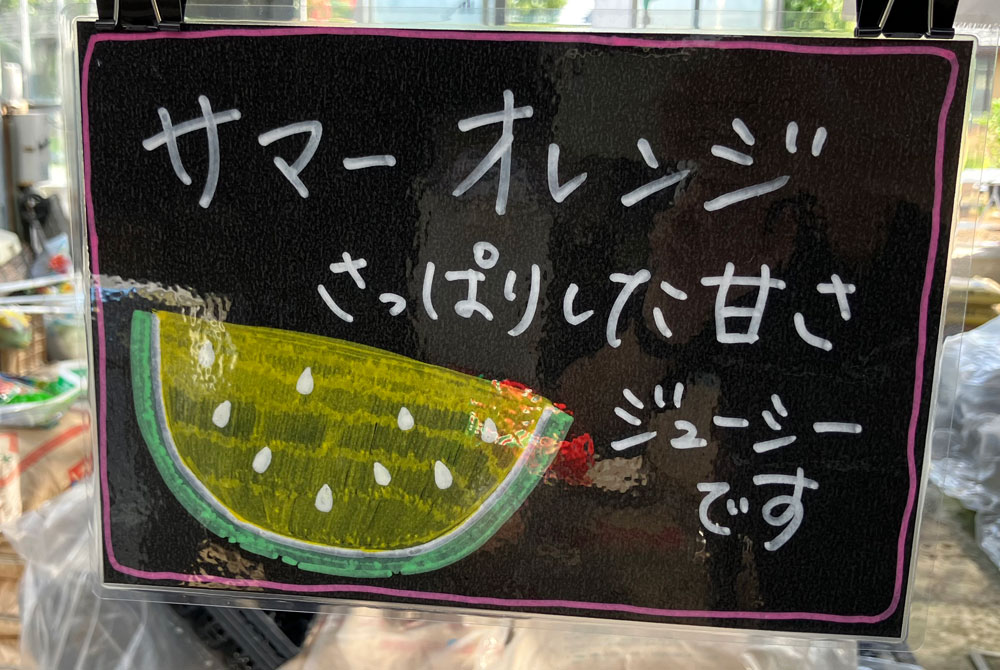 サマーオレンジ
さっぱりした甘さ
ジューシー
です